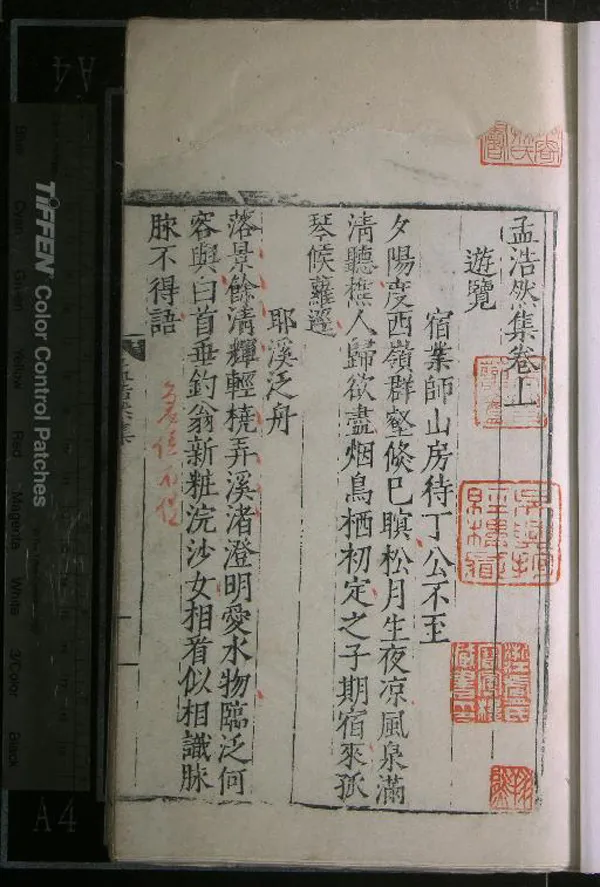 孟浩然集卷上
遊覽
宿業師山房待丁公不至
夕陽度西嶺群壑倏已暝松月生夜凉風泉滿
清聽樵人歸欲盡烟鳥栖初定之子期宿來孤
琴候蘿逕
耶溪泛舟
落景餘清輝輕橈弄溪渚澄明愛水物臨泛何
容與白首垂釣翁新粧浣沙女相看似相識脉
脉不得語
A4
TIFFEN Color Control Patches
Blue
Cyan
Green
Yellow
Red
Magenta
White
3/Color
Black
A4